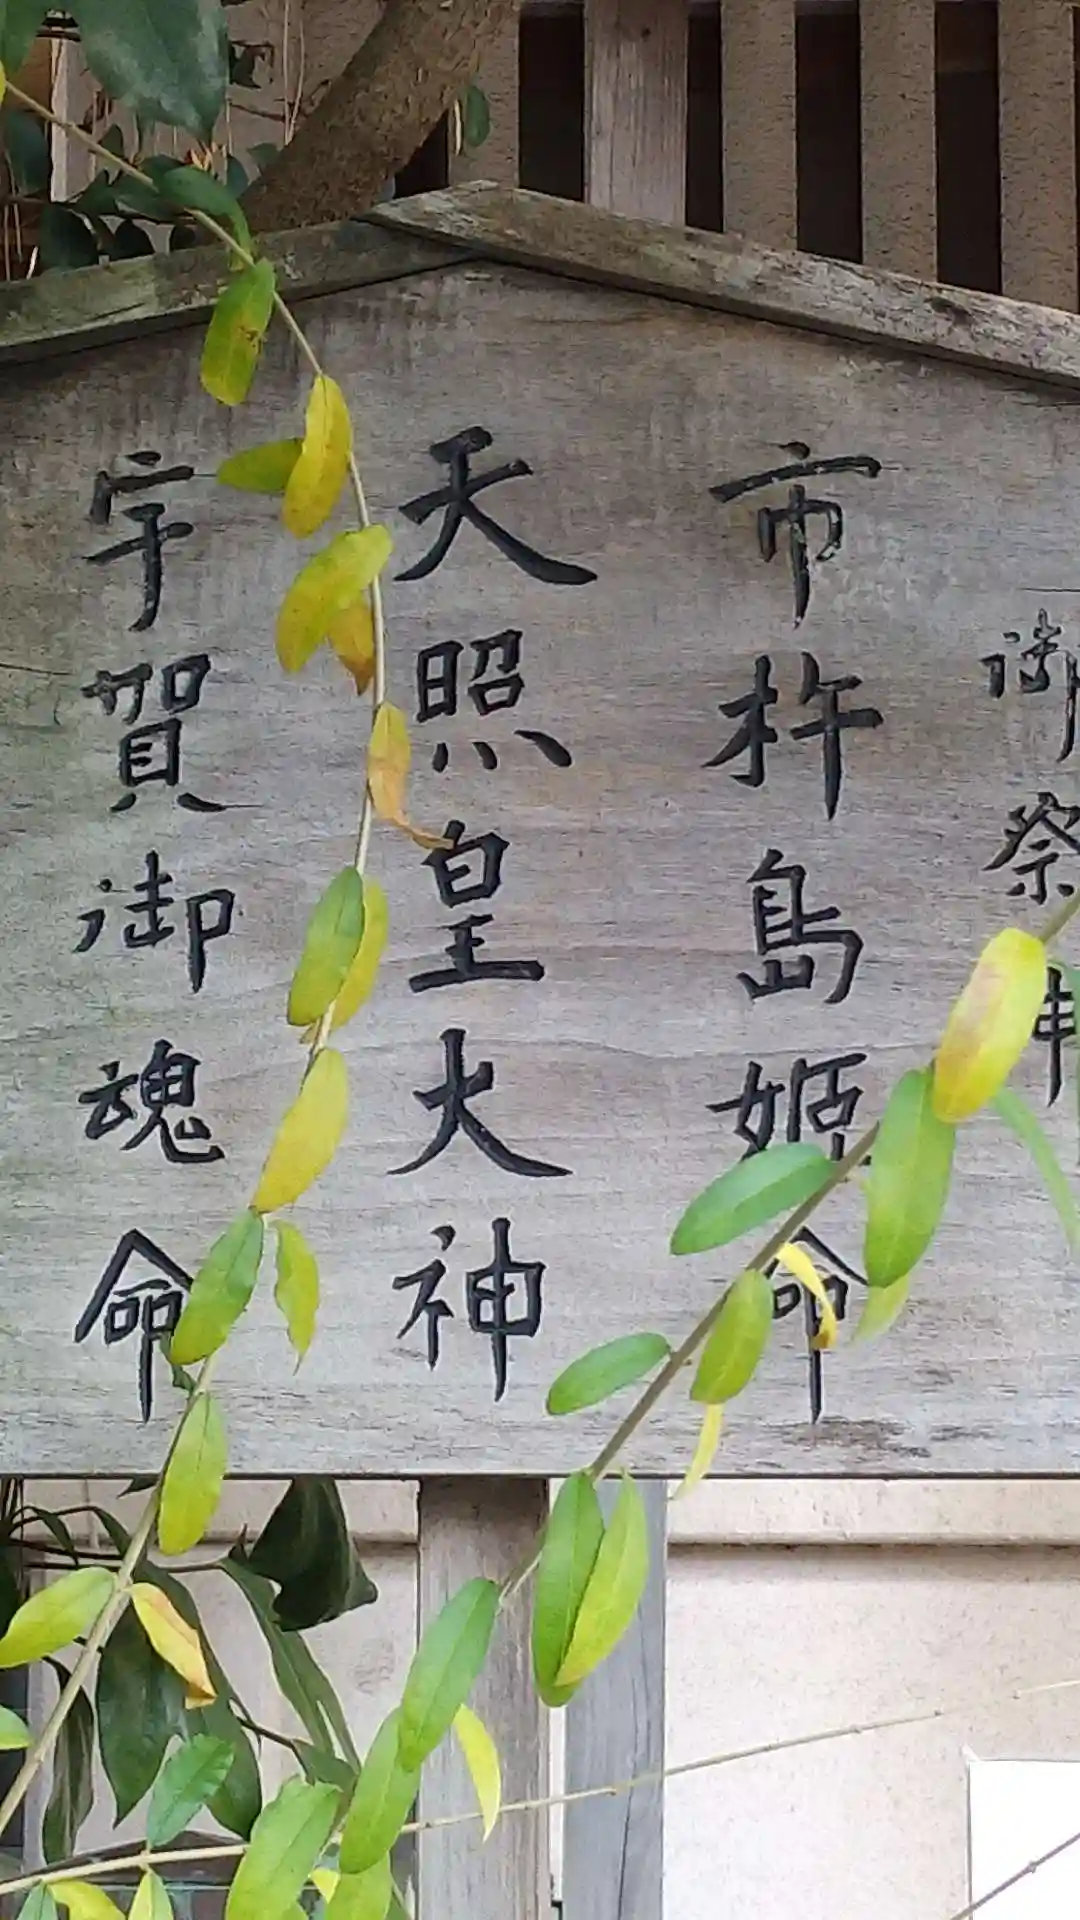 御祭神
市杵島姫命
天照皇大神
宇賀御魂命